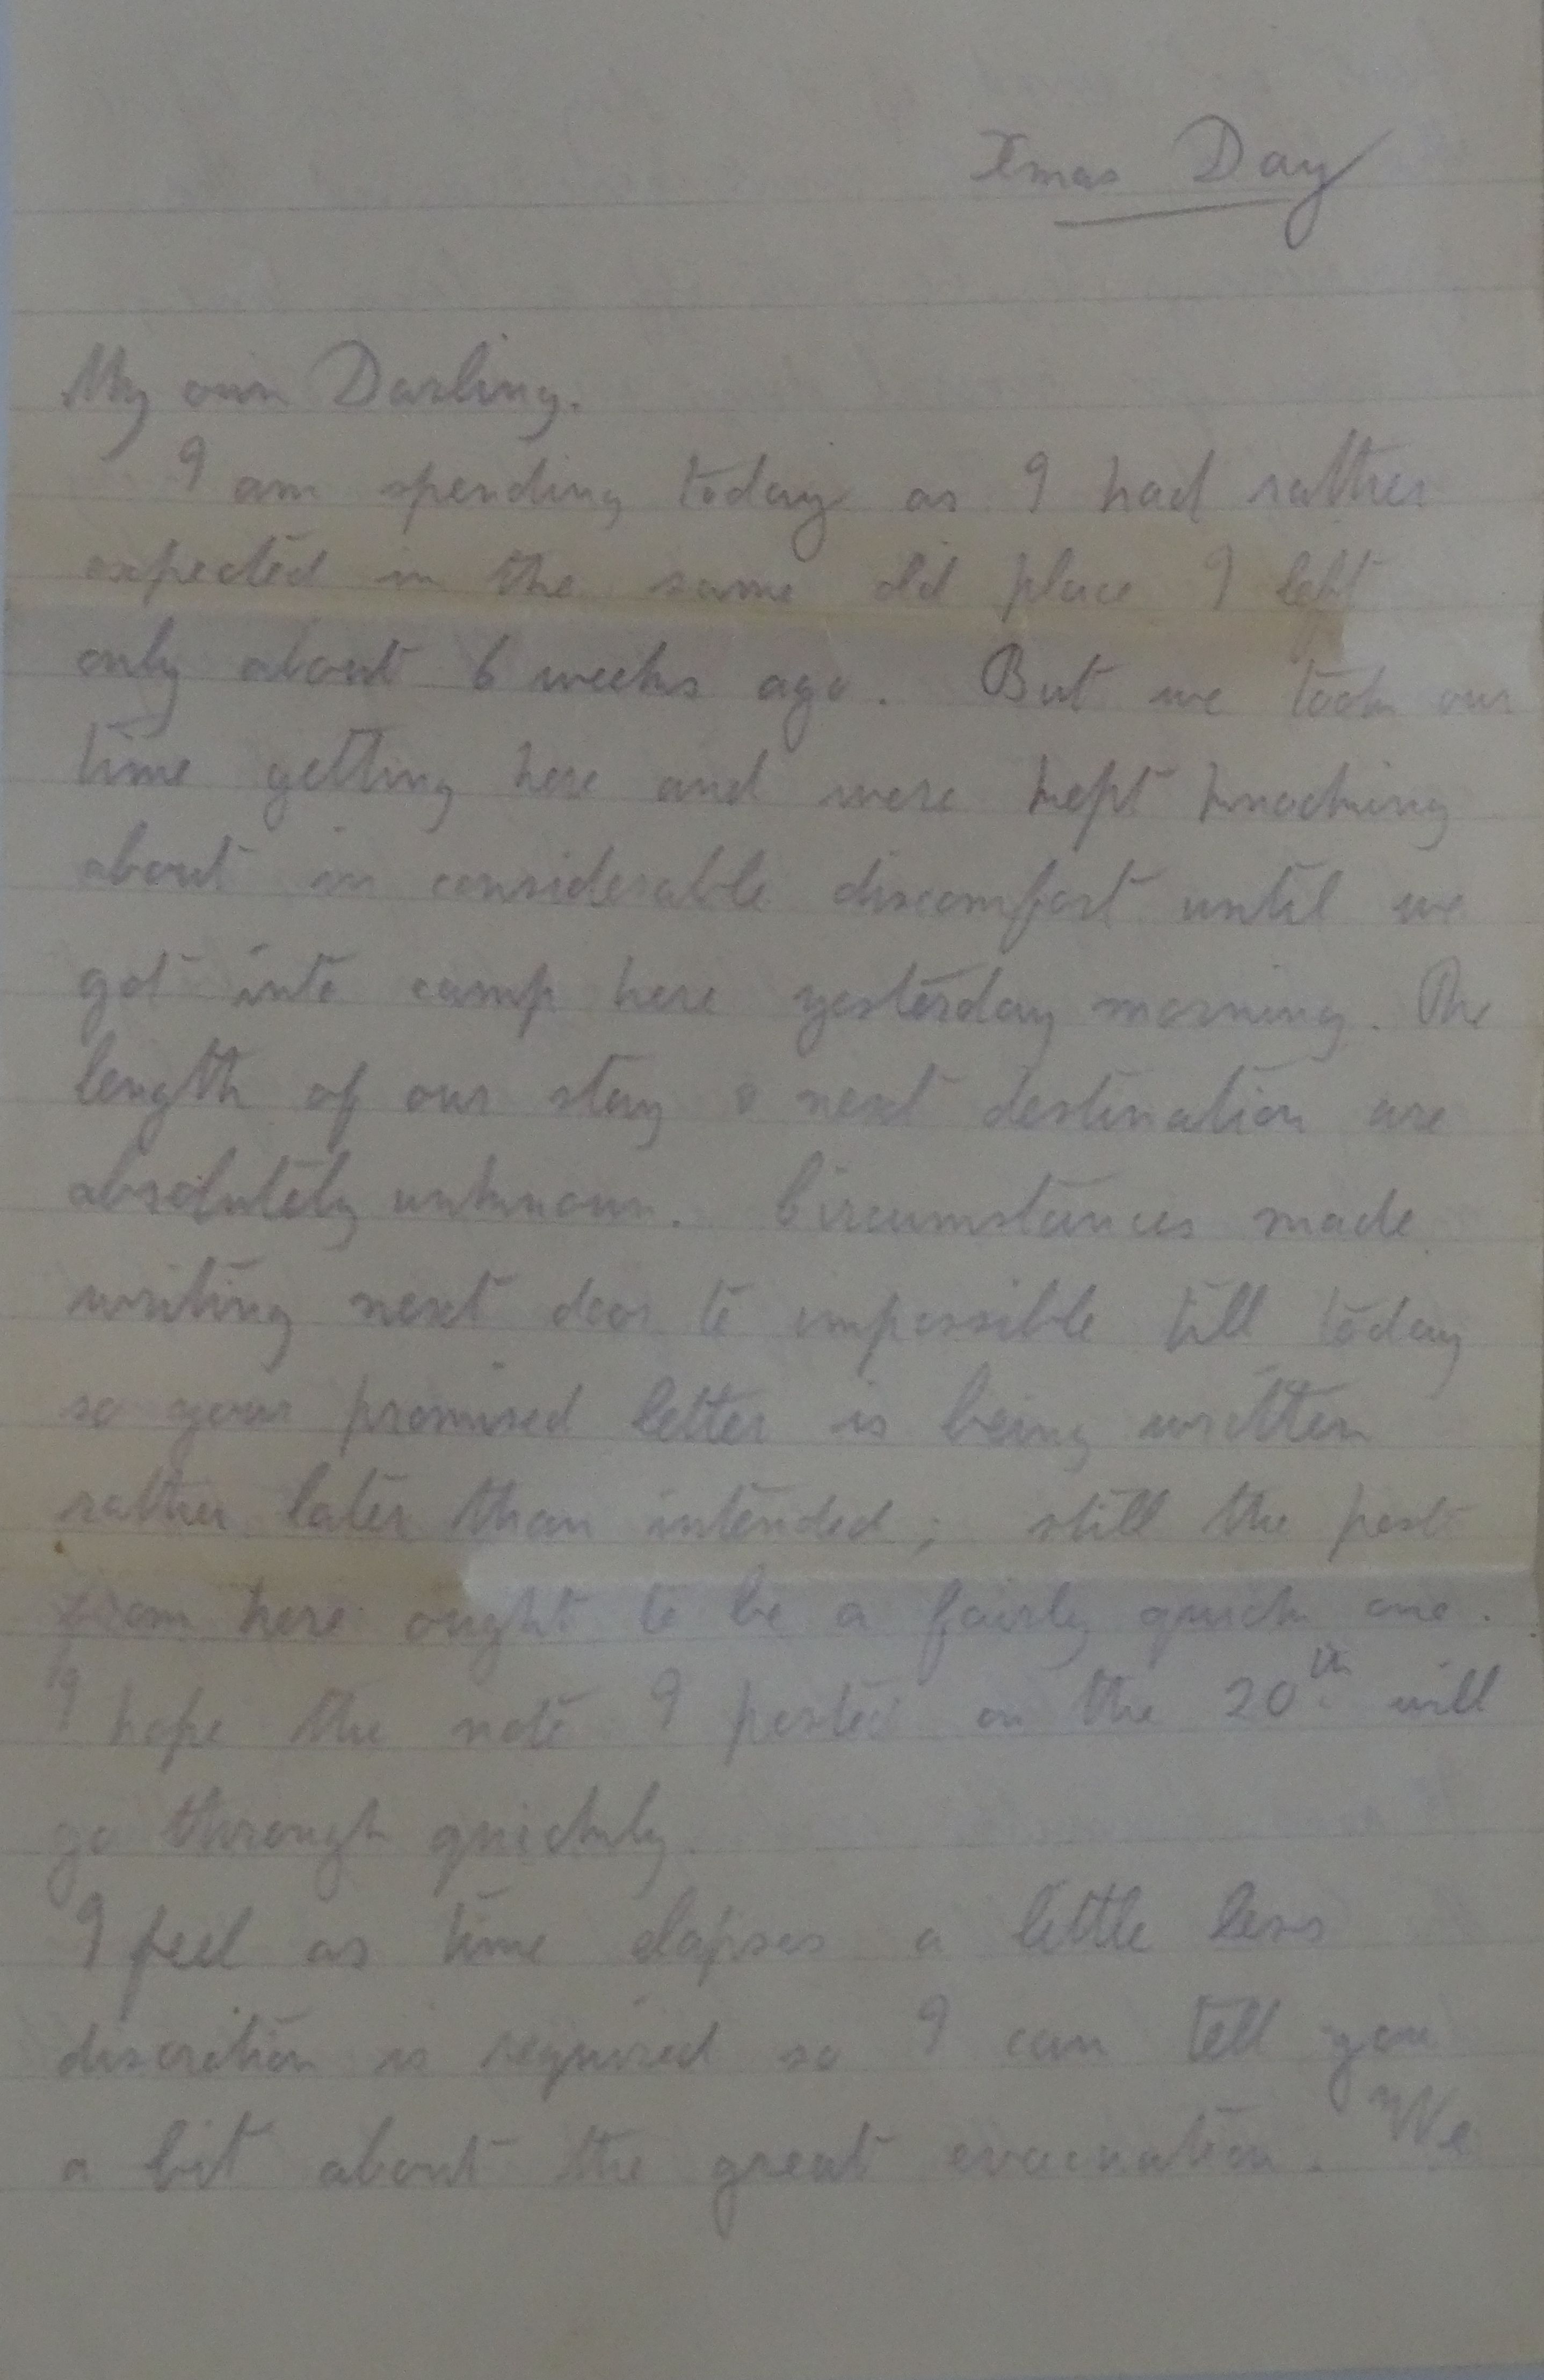 Xmas Day
My own Darling.
I am spending today as I had rather
expected in the same old place I left
only about 6 weeks ago. But we took our
time getting here and were kept knocking
about in considerable discomfort until we
got into camp here yesterday morning. The
length of our stay & next destination are
absolutely unknown. Circumstances made
writing next door to impossible till today
so your promised letter is being written
rather later than intended; still the post
from here ought to be a fairly quick one.
I hope the note I posted on the 20th will
go through quickly.
I feel as time elapses a little less
discretion is required so I can tell you
a bit about the great evacuation. We